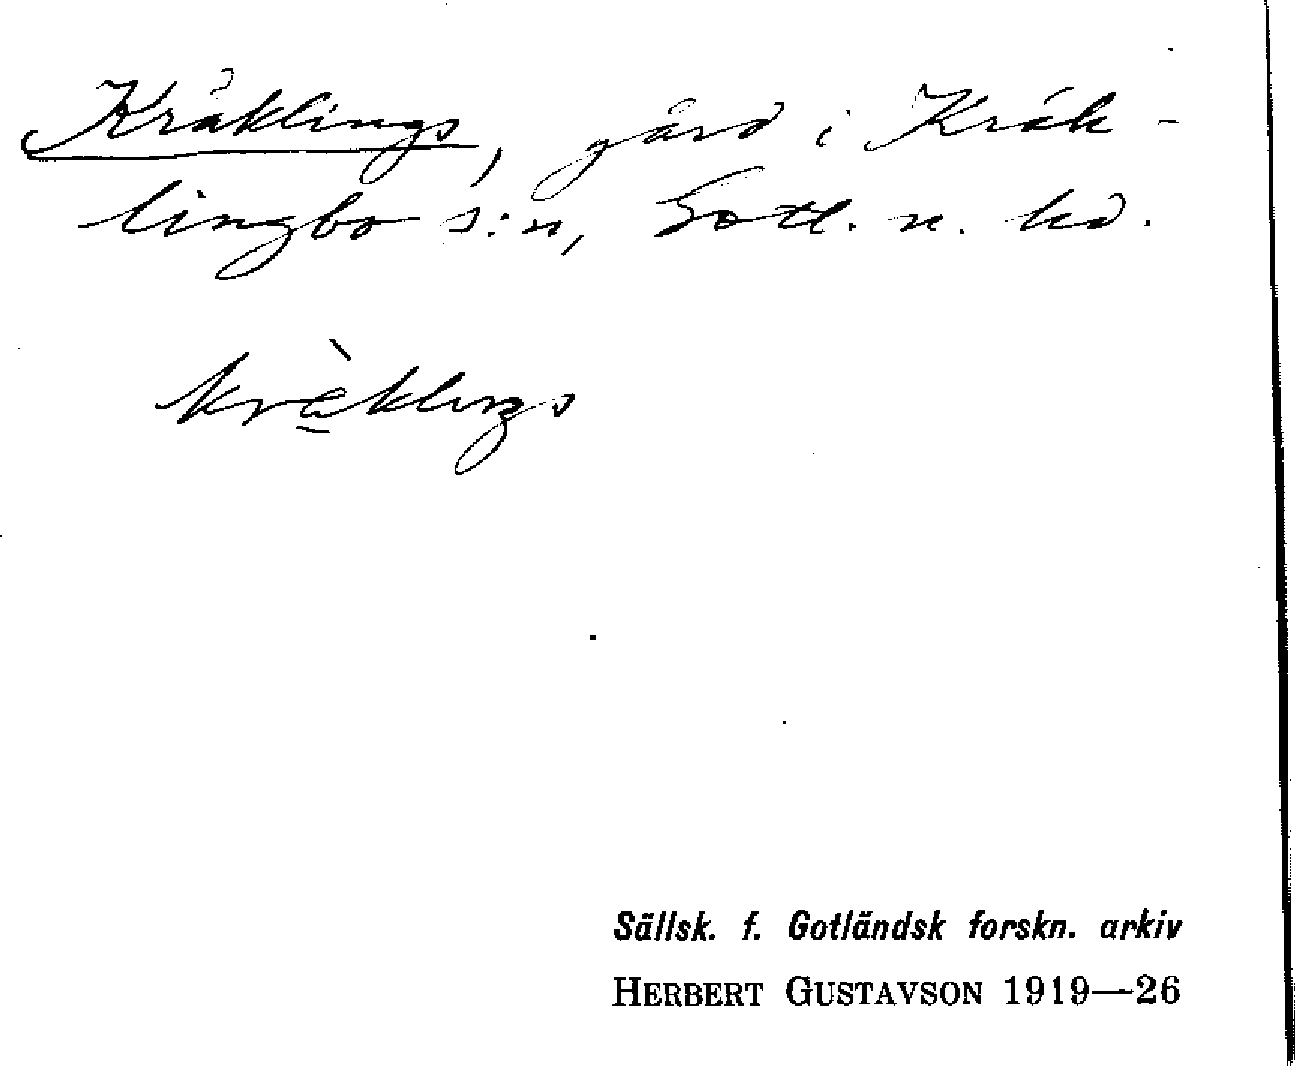 Kråklings, gård i Kräk-
lingbo s:n, Gotl. n. hd.
kràklings
Sällsk. f. Gotländsk forskn. arkiv
HERBERT GUSTAVSON 1919—26